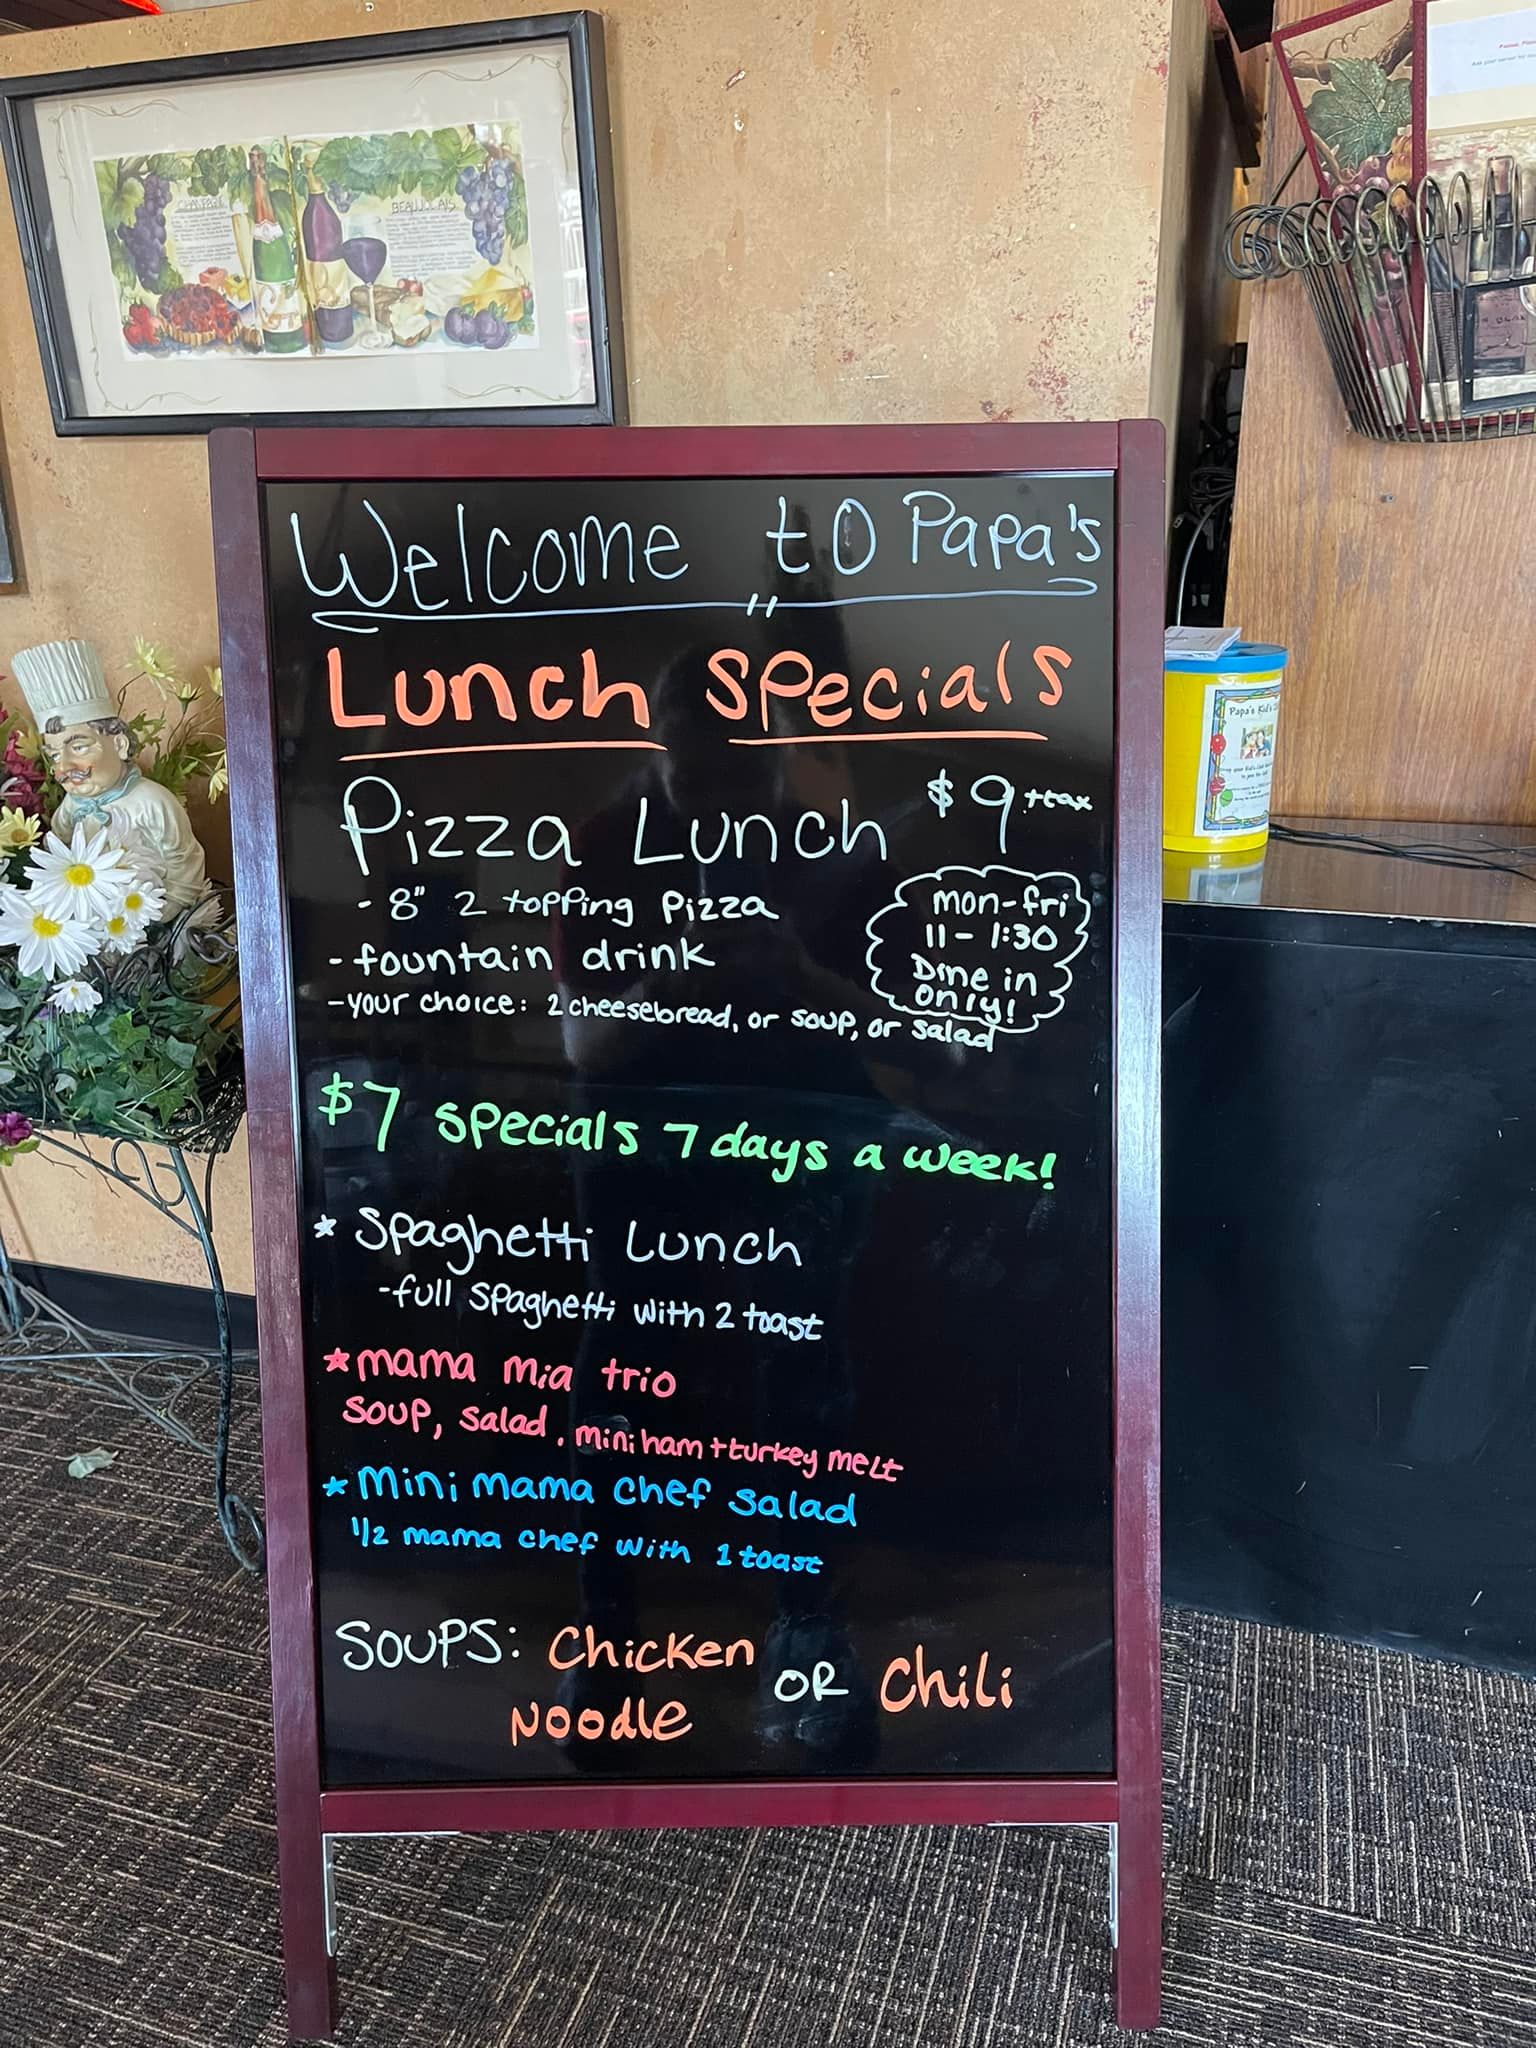 CHAMPAGNE
BEAUJOLAIS
Welcome to Papa's
Lunch Specials
Pizza Lunch $9 +tax
- 8" 2 topping pizza
- fountain drink
- your choice: 2 cheesebread, or soup, or salad
mon-fri
11-1:30
Dine in
only!
$7 specials 7 days a week!
* Spaghetti Lunch
- full spaghetti with 2 toast
* mama mia trio
soup, salad, mini ham + turkey melt
* mini mama chef salad
1/2 mama chef with 1 toast
Soups: Chicken Noodle OR Chili
Papa's Kid's